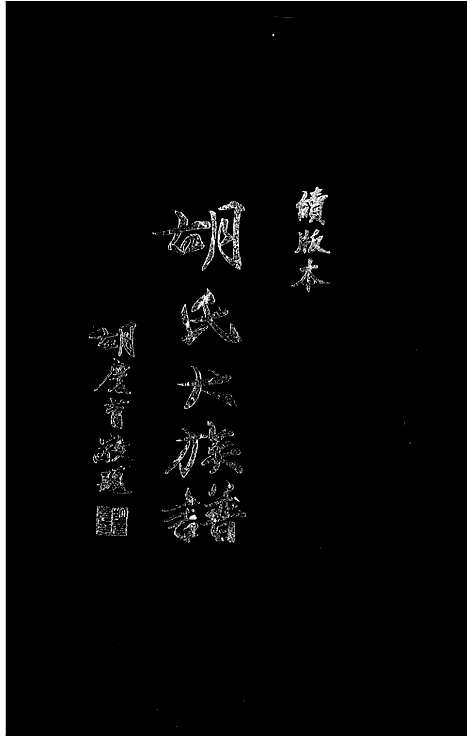 續版本
胡氏大族譜
胡慶曾敬題